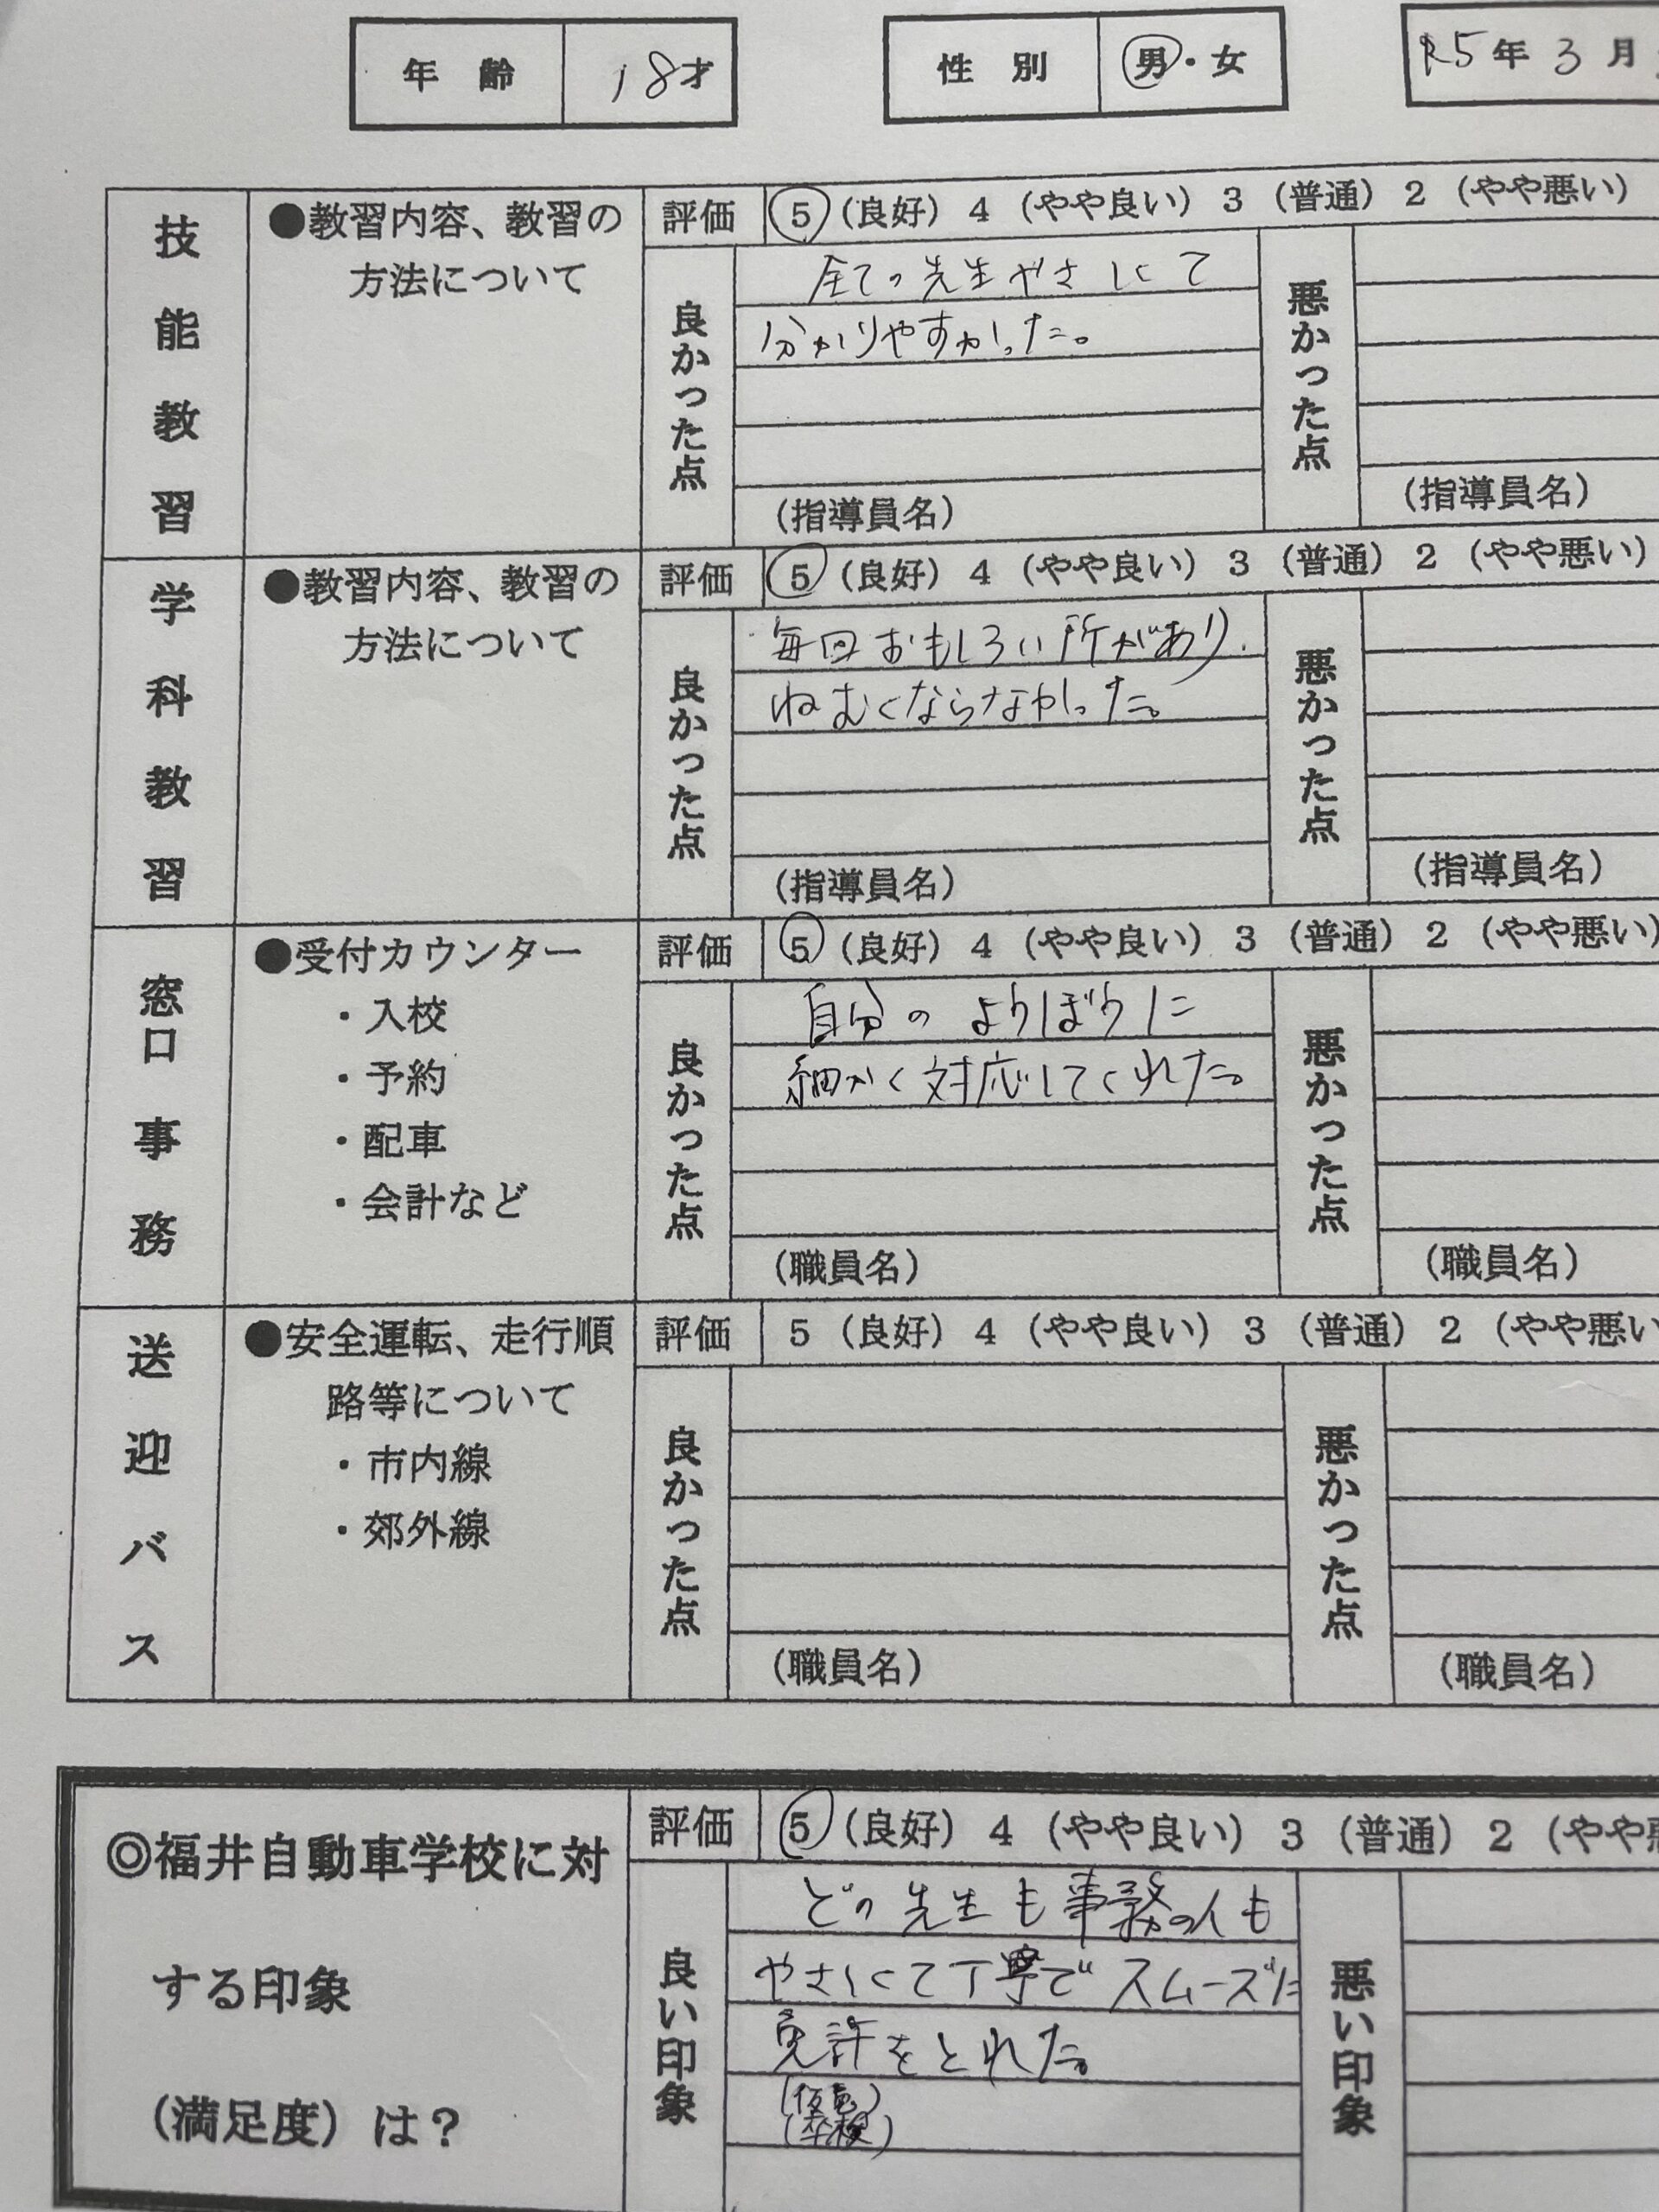 年齢 18才 性別 男・女 R5年3月
技能教習
●教習内容、教習の
方法について
評価 5（良好）4（やや良い）3（普通）2（やや悪い）
良かった点
全ての先生やさしくて
分かりやすかった。
（指導員名）
悪かった点
（指導員名）
学科教習
●教習内容、教習の
方法について
評価 5（良好）4（やや良い）3（普通）2（やや悪い）
良かった点
毎回おもしろい所があり、
ねむくならなかった。
（指導員名）
悪かった点
（指導員名）
窓口事務
●受付カウンター
・入校
・予約
・配車
・会計など
評価 5（良好）4（やや良い）3（普通）2（やや悪い）
良かった点
自分のようぼうに
細かく対応してくれた。
（職員名）
悪かった点
（職員名）
送迎バス
●安全運転、走行順
路等について
・市内線
・郊外線
評価 5（良好）4（やや良い）3（普通）2（やや悪い
良かった点
（職員名）
悪かった点
（職員名）
◎福井自動車学校に対
する印象
（満足度）は？
評価 5（良好）4（やや良い）3（普通）2（やや悪
良い印象
どの先生も事務の人も
やさしくて丁寧でスムーズに
免許をとれた。
（仮免）
（卒検）
悪い印象